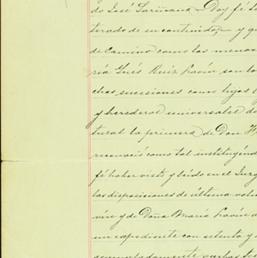 de José Sariñana. Doy fé
terado de su contenido, y q
de Camino como las menore
ría Inés Ruiz
chas sucesiones como hijos
y herederos universales de
tural la primera de Don
reconoció como tal instituyénd
fé haber visto y leído en el Juzg
las disposiciones de última volun
vire y de Doña María
un espediente con setenta y
acumuladamente